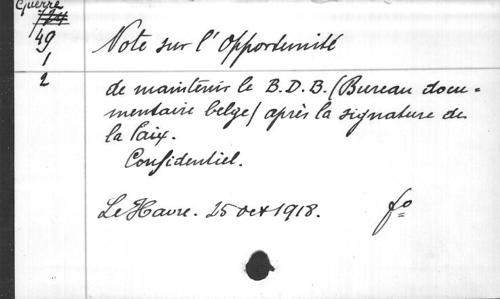 Guerre
49
1
2
Note sur l'Opportunité
de maintenir le B.D.B. (Bureau docu-
mentaire belge) après la signature de
la Paix.
Confidentiel.
Le Havre. 25 oct 1918.
fo